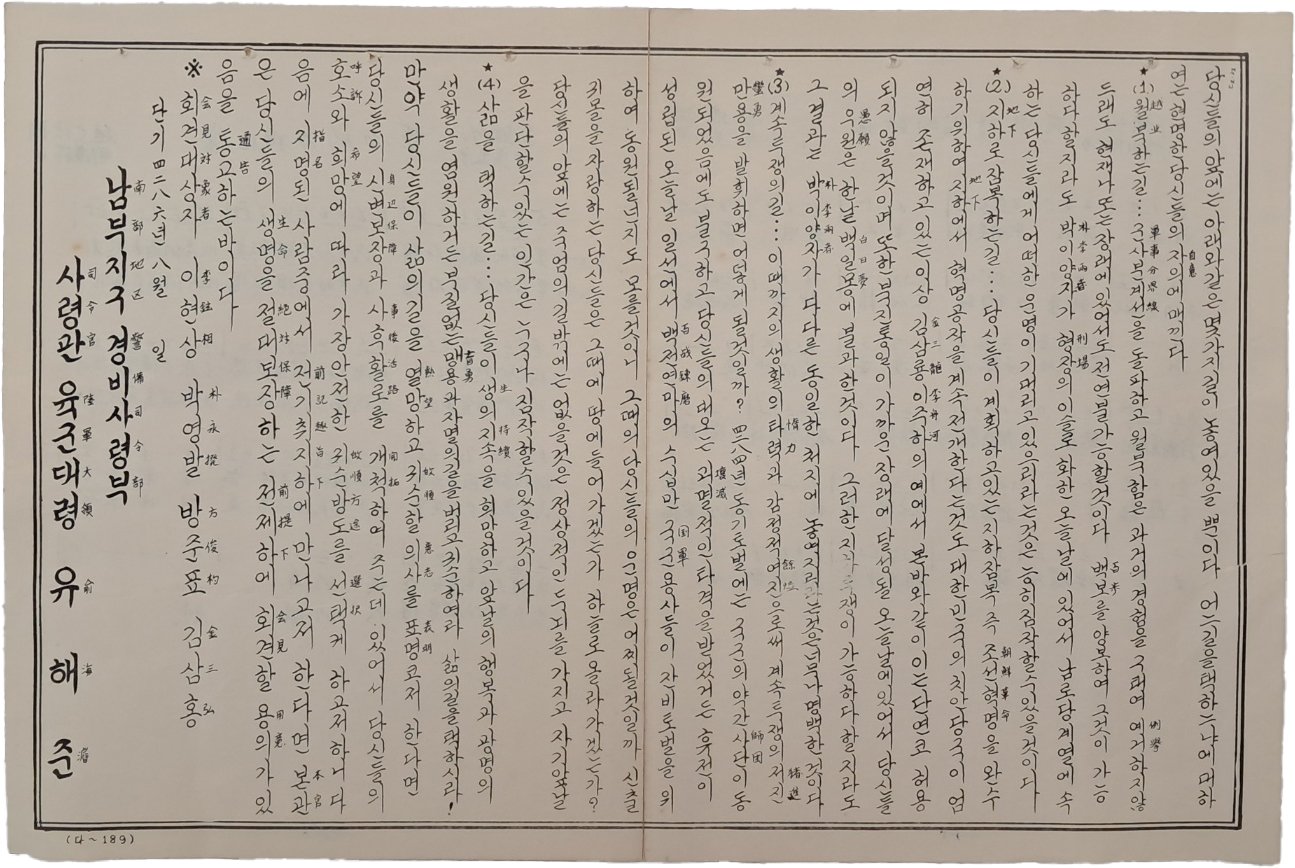 당신들의 앞에는 아래와같은 몇가지길이 놓여있을 뿐이다 어느길을택하느냐에 대하
여는현명한당신들의 자의에 매끼다
自意
★(1) 월북하는길… 군사분계선을 돌파하고 월북함은 과거의경험을 구태여 예거하지않
越北 軍事分界線 例擧
드래도 현재나 또는장래에 있어서도전연불가능할것이다 백보를양보하여 그것이 가능
百步
하다할지라도 박이양자가 형장의이슬로 화한 오늘날에 있어서 남로당계열에 속
朴李両者 刑場
하는 당신들에게 어떠한운명이 기다리고 있으리라는것은 능히짐작할수있을것이다
★(2) 지하로잠복하는길… 당신들이 계획하고있는지하잠복 즉 조선혁명을 완수
地下 地下 朝鮮革命
하기위하여 지하에서 혁명공작을 계속전개한다는것도 대한민국의 치안당국이 엄
연히 존재하고있는이상 김삼룡이주하의 예에서 본바와같이 이는단연코 허용
金三龍 李舟河
되지 않을것이며 또한북진통일이 가까운장래에 달성될 오늘날에있어서 당신들
의 우원은 한낱 백일몽에 불과한것이다 그러한지하투쟁이 가능하다 할지라도
愚願 白日夢
그결과는 박이양자가 다다른 동일한 처지에 놓여지리라는것은너무나명백한것이다
朴李両者
★(3) 계속투쟁의길… 이때까지의 생활의타력과 감정적여진으로써 계속투쟁의저진
惰力 餘燼 猪進
만용을 발휘하면 어덯게 될것일까? 四二八四년동기토벌에는 국군의약간사단이동
蠻勇 師団
원되었음에도 불구하고 당신들의대오는 괴멸적인타격을받었거든 휴전이
壊滅
성립된 오늘날 일선에서 백전연마의 수십만 국군용사들이 잔비토벌을위
百戦錬磨 国軍
하여 동원될런지도 모를것이니 그때의당신들의 운명은 어찌될것일까 신출
귀몰을자랑하는 당신들은 그때에 땅에들어가겠는가 하늘로올라가겠는가?
당신들의 앞에는죽엄의길밖에는없을것은 정상적인두뇌를 가지고 자기앞날
을판단할수있는인간은 누구나 짐작할수있을것이다
★(4) 삶을 택하는길… 당신들이 생의지속을 희망하고 앞날의행복과광명의
生 持續
생활을염원하거든부질없는맹용과자멸의길을버리고귀순하여라 삶의길을택하시라!
盲勇
만약 당신들이 삶의길을 열망하고 귀순할의사를 표명코저 하다면
熱望 歸順 意志 表明
당신들의 신변보장과 사후활로를 개척하여 주는데 있어서 당신들의
身辺保障 事後活路 開拓
호소와 희망에 따라 가장안전한 귀순방도를 선택케 하고저하니 다
呼訴 希望 歸順方途 選択
음에 지명된 사람중에서 전기취지하에 만나고저 한다면 본관
指名 前記趣旨下 本官
은 당신들의 생명을절대보장하는 전제하에 회견할 용의가있
生命 絶対保障 前提下 会見 用意
음을 통고하는바이다
通告
※ 회견대상자 이현상 박영발 방준표 김삼홍
会見対象者 李鉉相 朴永撥 方俊杓 金三弘
단기 四二八六년 八월 일
남부지구 경비사령부
南部地区 警備司令部
사령관 육군대령 유해준
司令官 陸軍大領 兪海濬
(다~189)